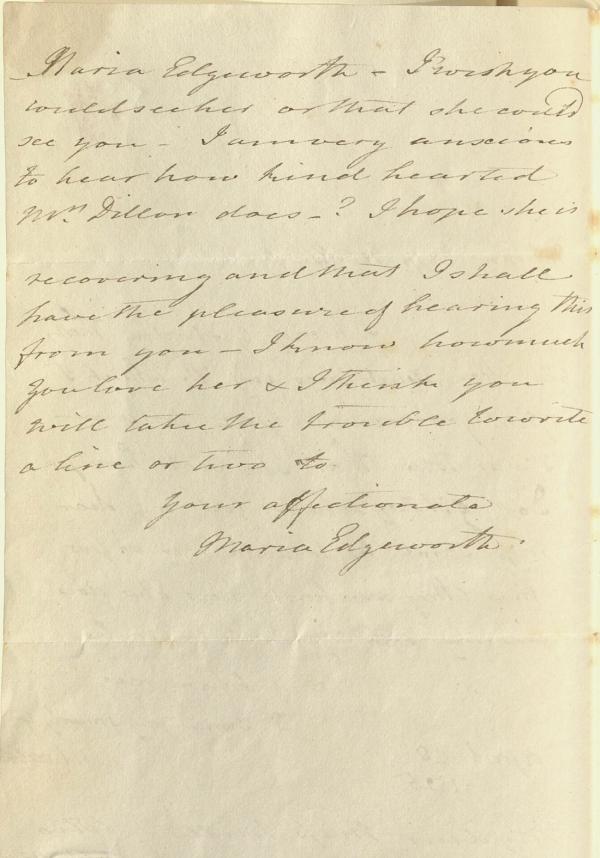 Maria Edgeworth - I wish you
would see her or that she could
see you - I am very anxious
to hear how kind hearted
Mrs. Dillon does - ? I hope she is
recovering and that I shall
have the pleasure of hearing this
from you - I know how much
you love her & I think you
will take the trouble to write
a line or two to
your affectionate
Maria Edgeworth.